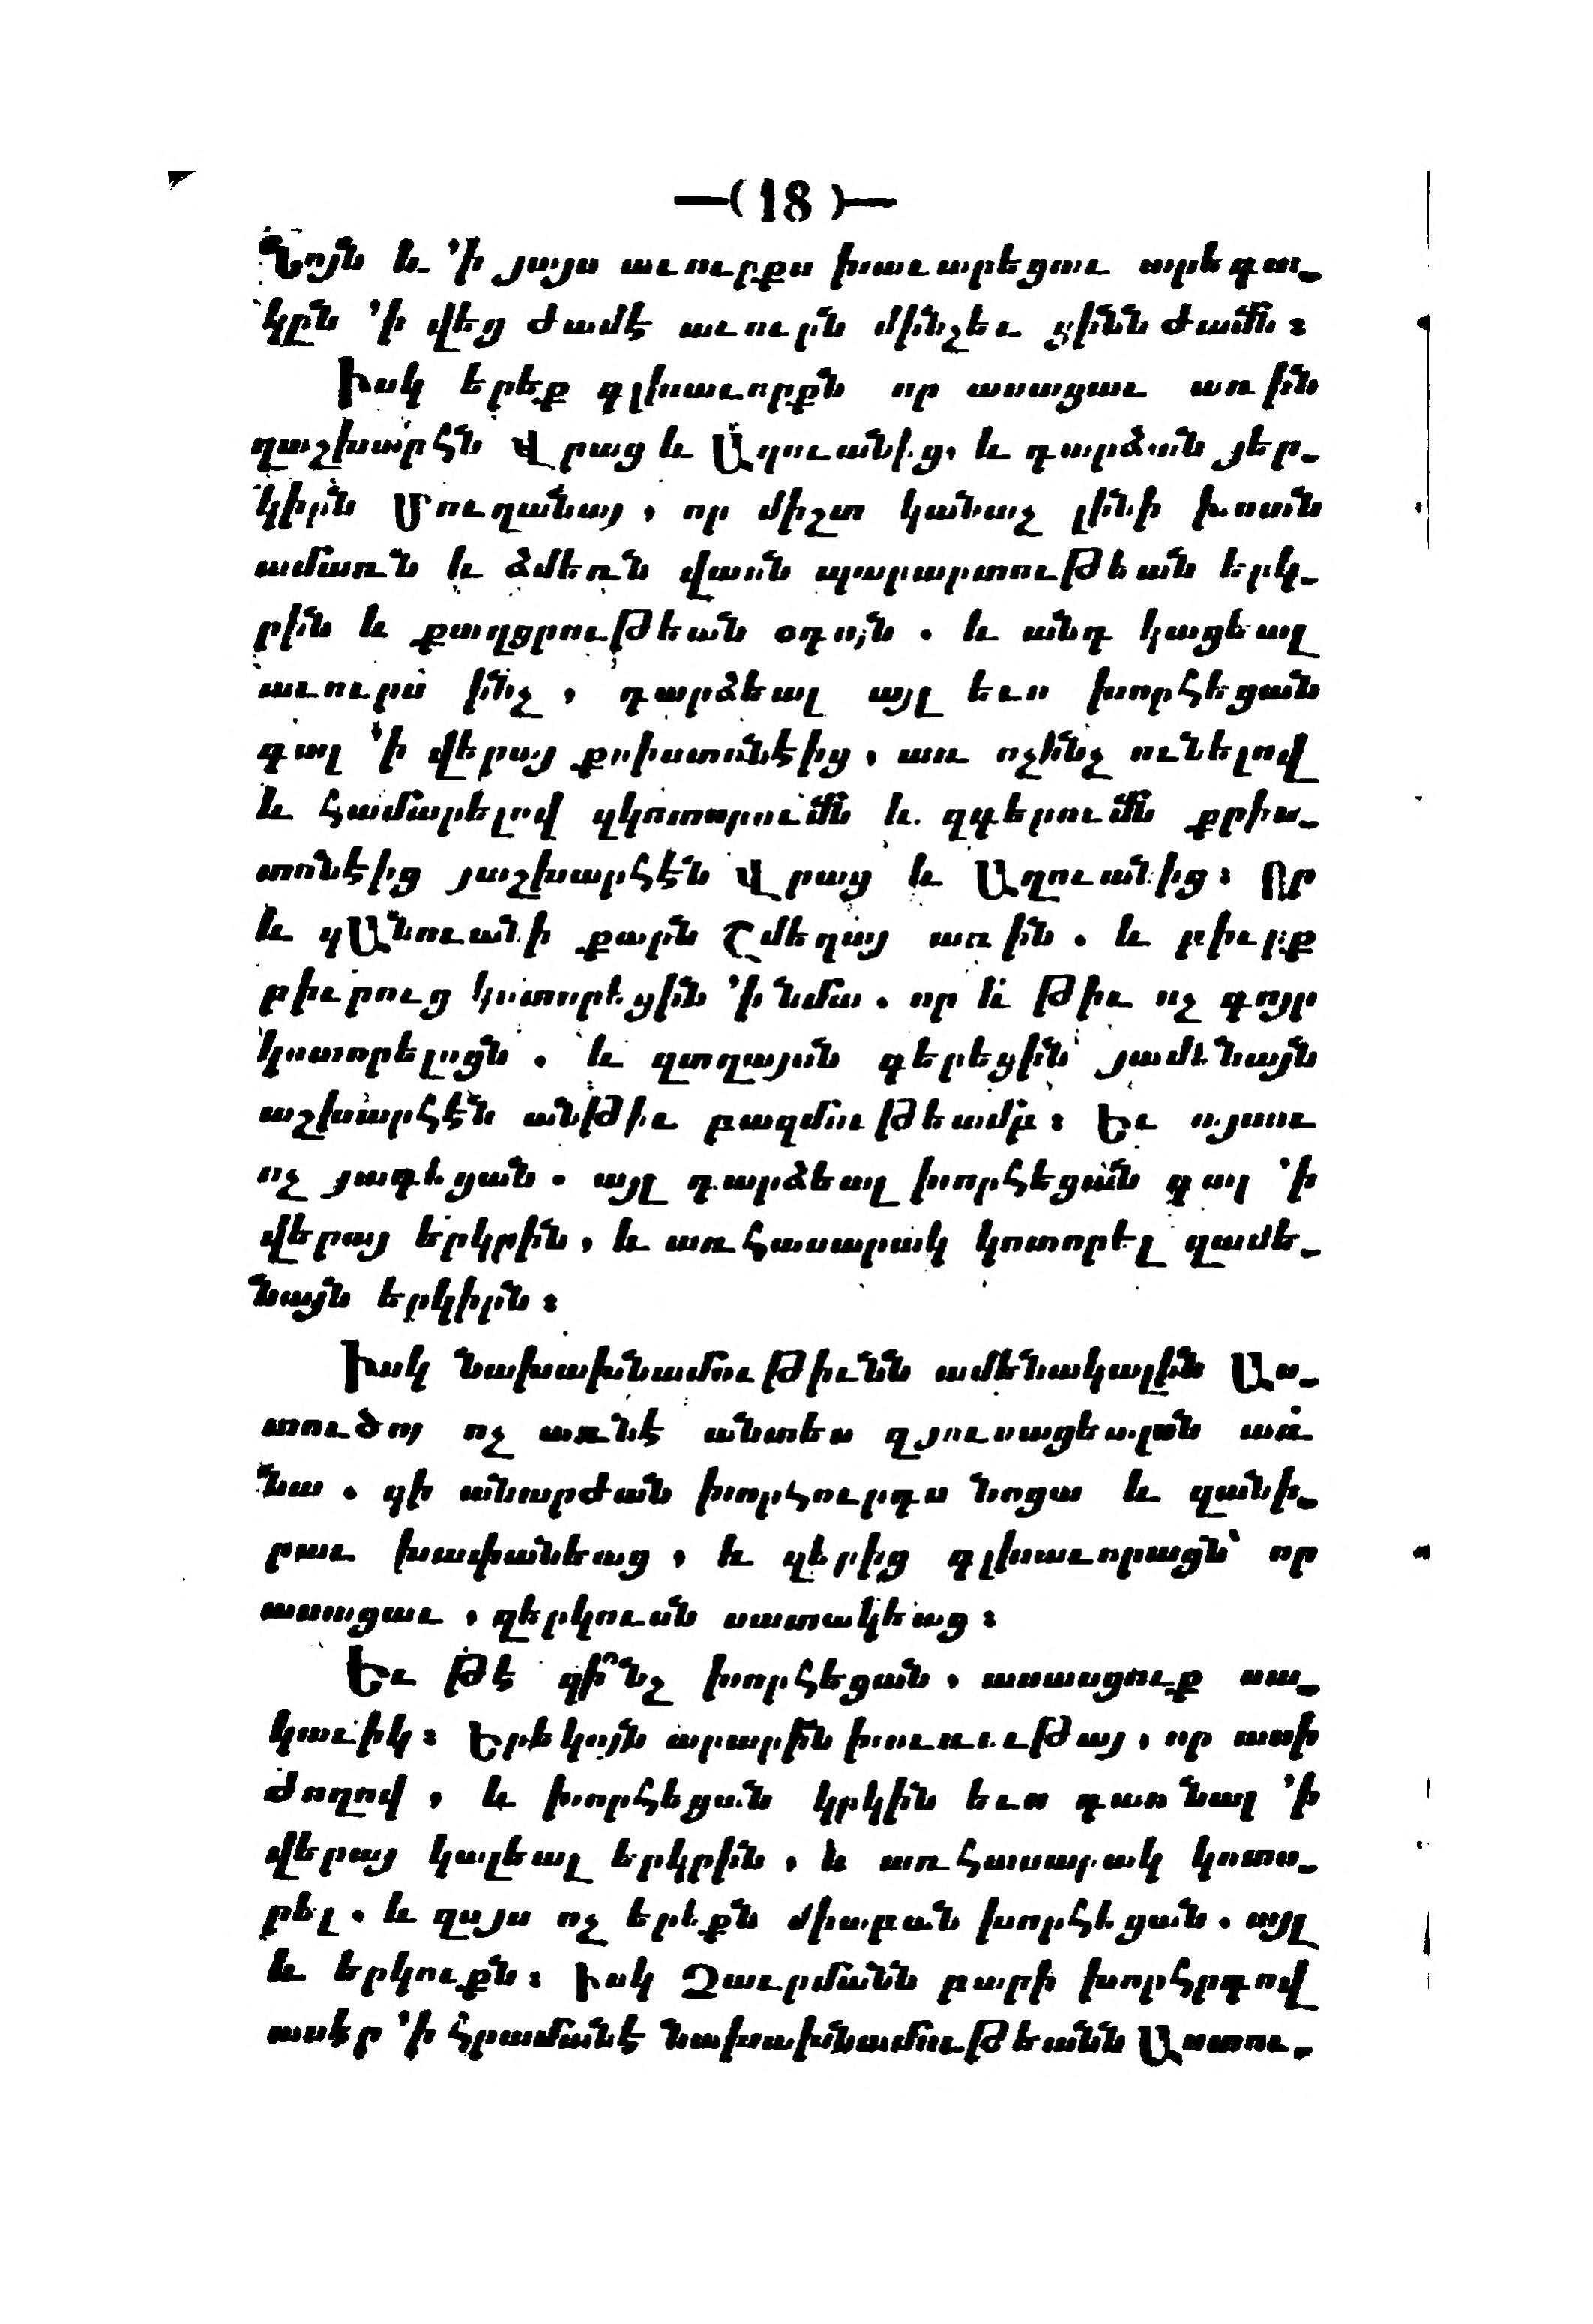 —( 18 )—
Նոյն և 'ի յայս աւուրքս խաւարեցաւ արեգա-
կըն 'ի վեց ժամէ աւուրն մինչեւ ցինն ժամն ։
Իսկ երեք գլխաւորքն որ ասացաւ առ ին
զաշխարհն Վրաց և Աղուանից, և դարձան յեր-
կիրն Մուղանայ , որ միշտ կանաչ լինի խոտն
ամառն և ձմեռն վասն պարարտութեան երկ-
րին և քաղցրութեան օդոյն . և անդ կացեալ
աւուրս ինչ , դարձեալ այլ եւս խորհեցան
գալ 'ի վերայ քրիստոնէից , առ ոչինչ ունելով
և համարելով զկոտորումն և զգերումն քրիս-
տոնէից յաշխարհէն Վրաց և Աղուանից ։ Որ
և զԱնուանի քարն Շմեղայ առին . և բիւրք
բիւրուց կոտորեցին 'ի նմա . որ և թիւ ոչ գոյր
կոտորելոցն . և զտղայսն գերեցին յամենայն
աշխարհէն անթիւ բազմութեամբ ։ Եւ այսու
ոչ յագեցան . այլ դարձեալ խորհեցան գալ 'ի
վերայ երկրին , և առհասարակ կոտորել զամե-
նայն երկիրն ։
Իսկ նախախնամութիւնն ամենակալին Աս-
տուծոյ ոչ առնէ անտես զյուսացեալսն առ
նա . զի անարժան խորհուրդս նոցա և զանի-
րաւ խափանեաց , և զերից գլխաւորացն՝ որ
ասացաւ , զերկուսն սատակեաց ։
Եւ թէ զի՞նչ խորհեցան , ասասցուք սա-
կաւիկ ։ Երեկոյն արարին խուռութայ , որ ասի
ժողով , և խորհեցան կրկին եւս գառնալ 'ի
վերայ կալեալ երկրին , և առհասարակ կոտո-
րել . և զայս ոչ երեքն միաբան խորհեցան . այլ
և երկուքն ։ Իսկ Չաւրմանն բարի խորհրդով
ասէր 'ի հրամանէ նախախնամութեանն Աստու-